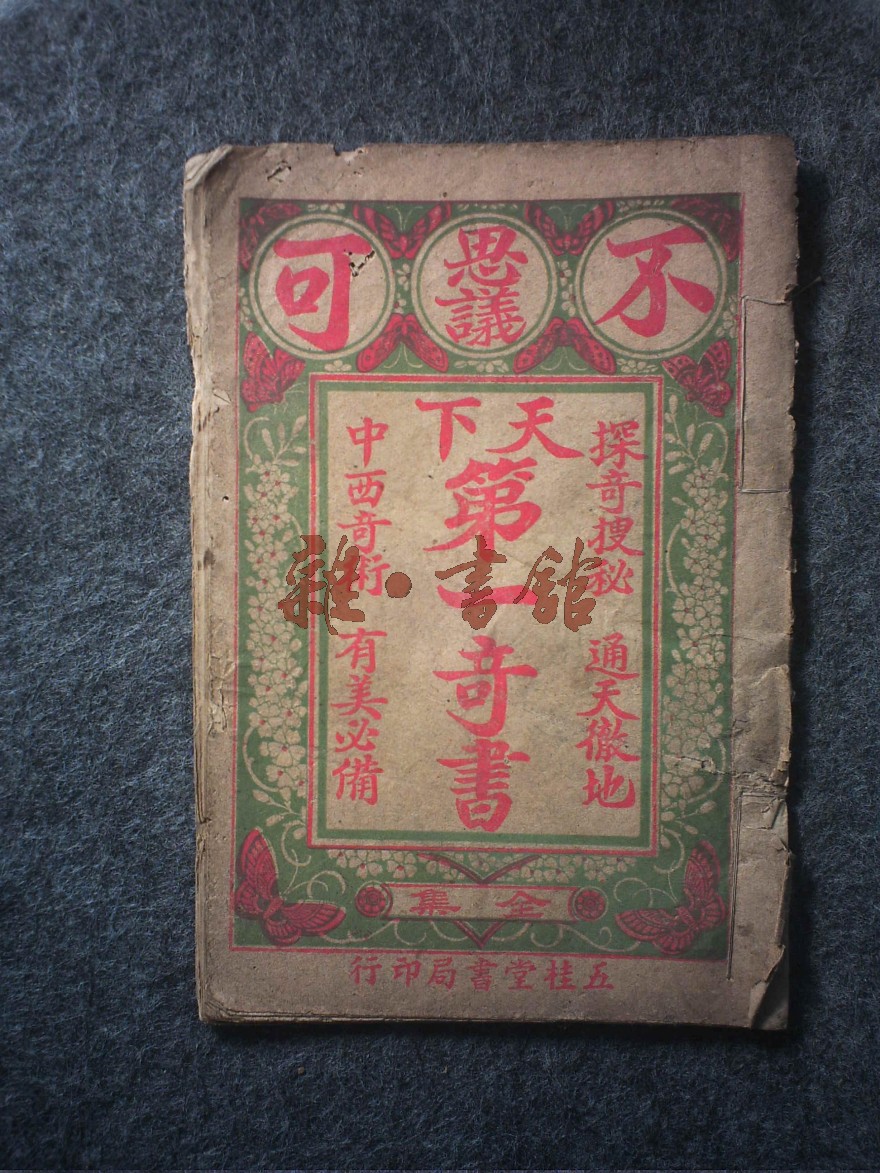 不可思議
探奇搜秘 通天徹地
天下
第一奇書
中西奇術 有美必備
全集
五桂堂書局印行
雜·書館